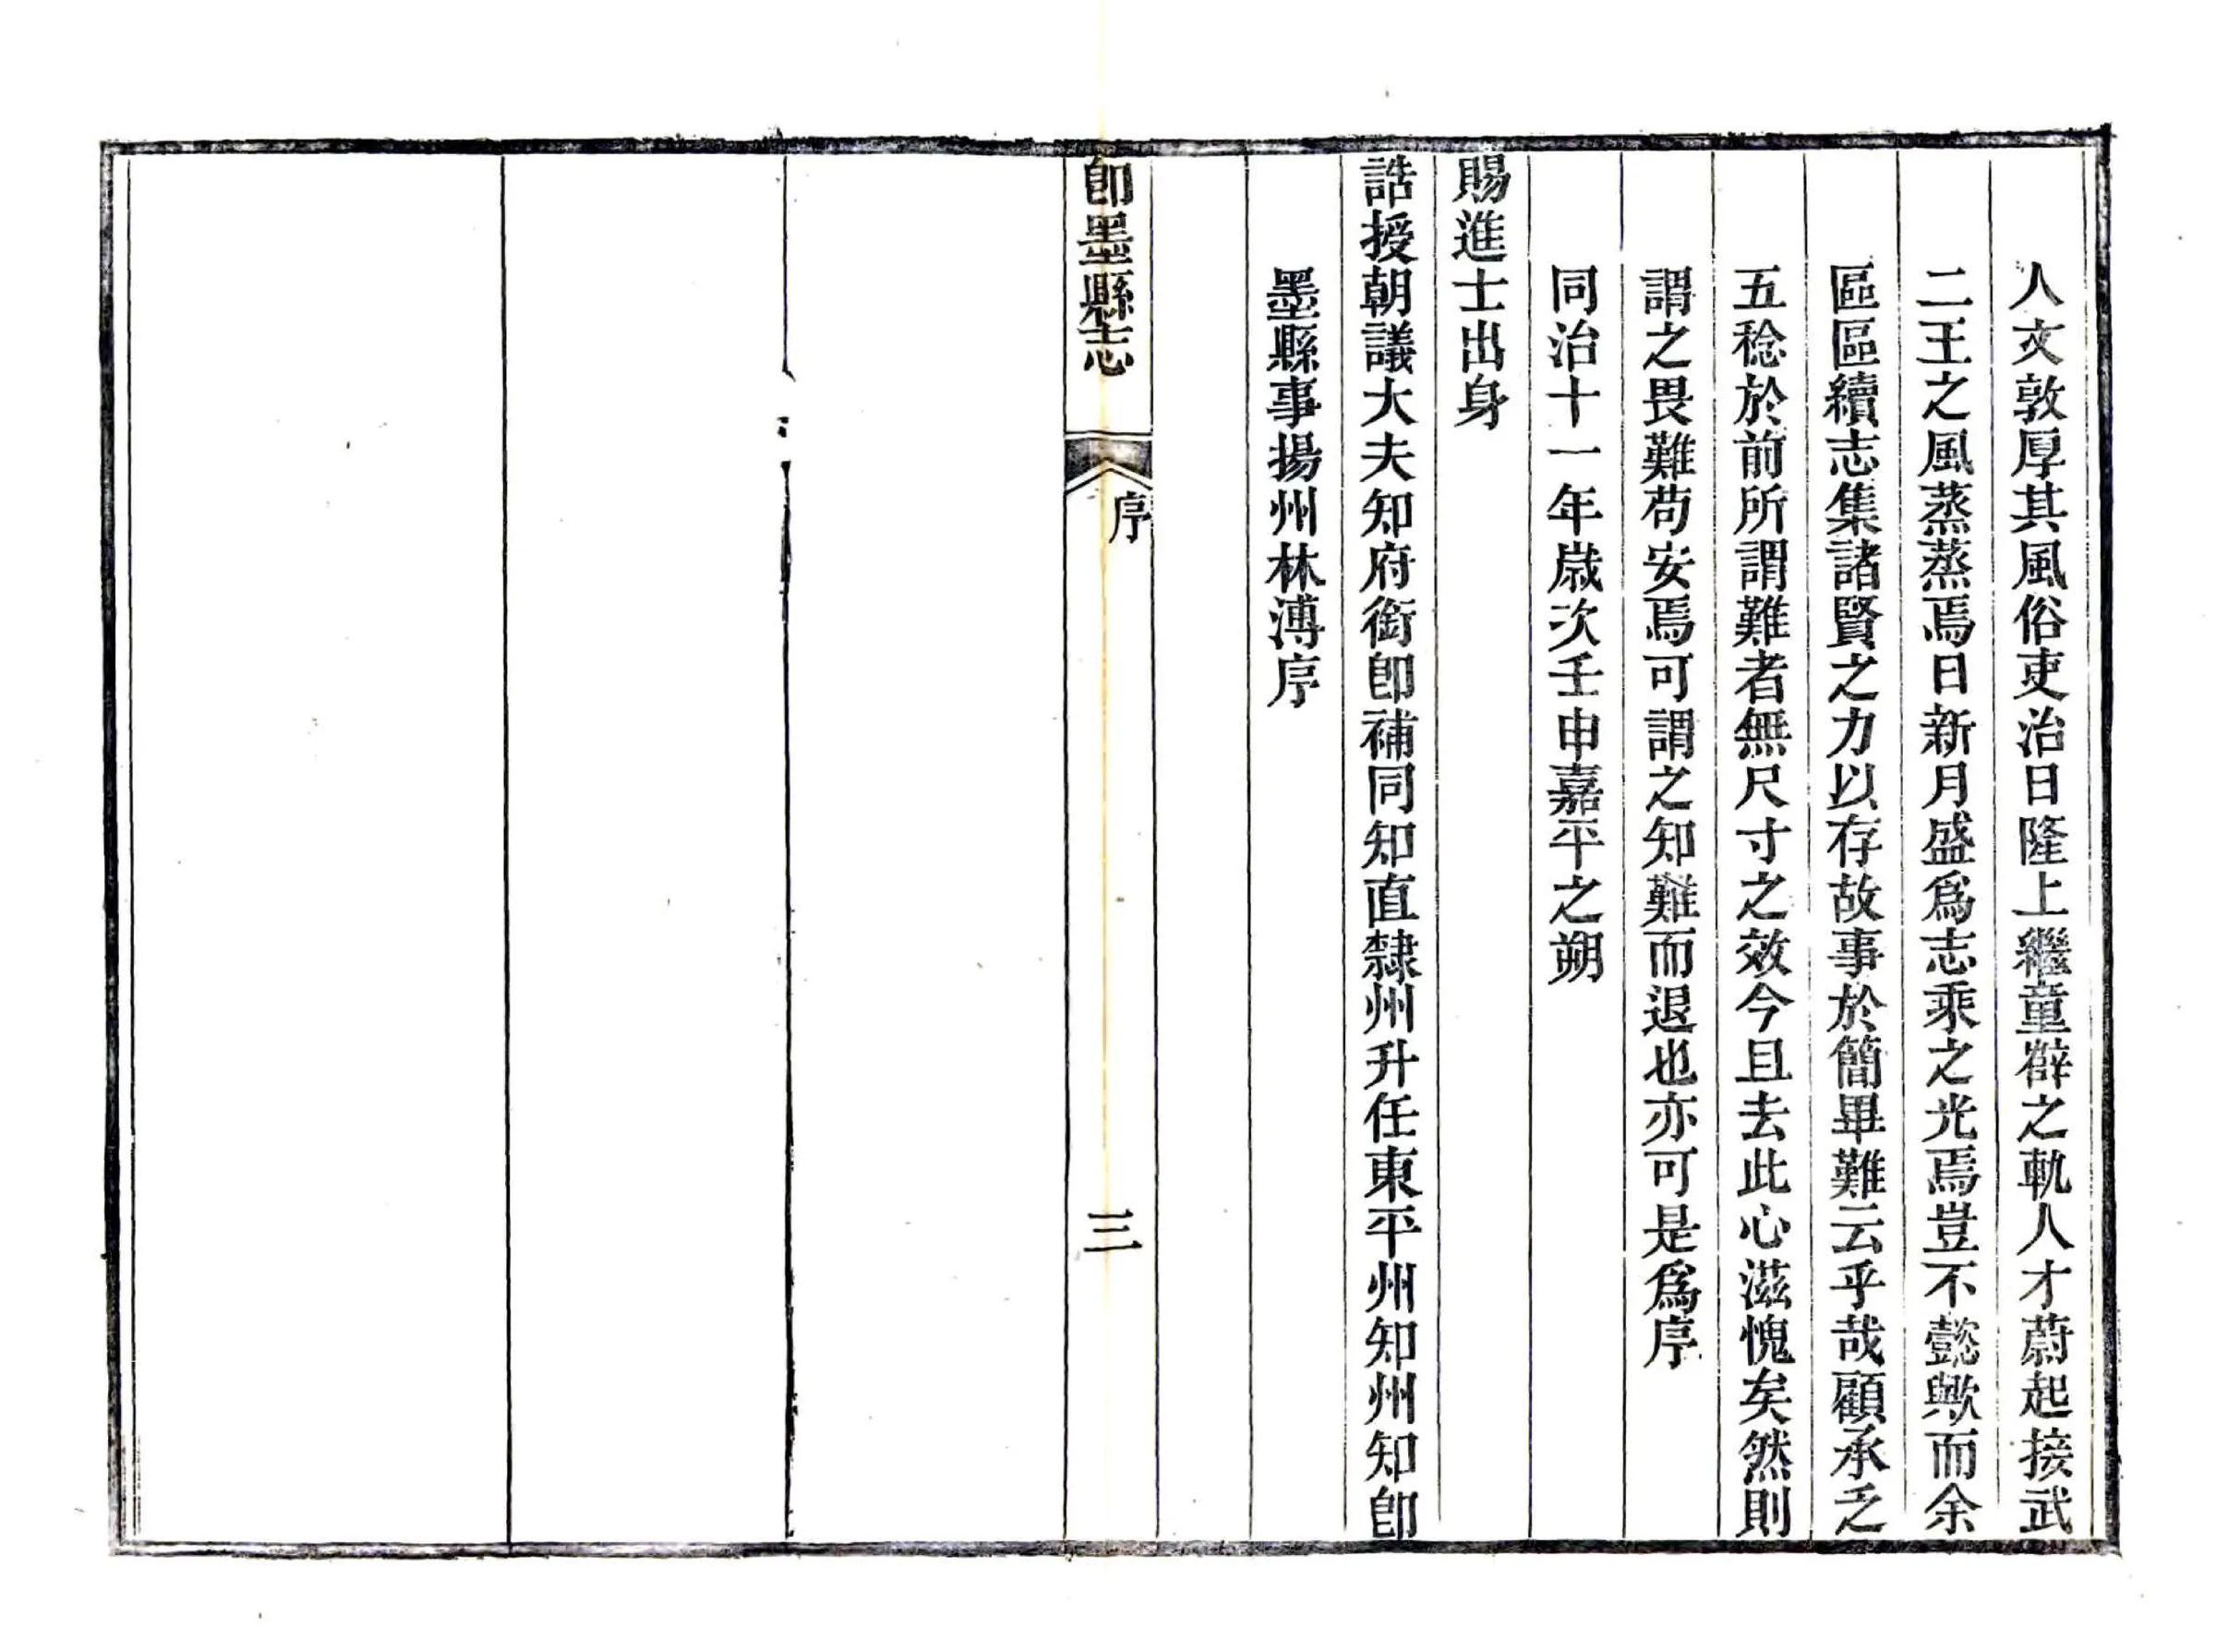 人文敦厚其風俗吏治日隆上繼童辟之軌人才蔚起接武
二王之風蒸蒸焉日新月盛爲志乘之光焉豈不懿歟而余
區區續志集諸賢之力以存故事於簡畢難云乎哉顧承乏
五稔於前所謂難者無尺寸之效今且去此心滋愧矣然則
謂之畏難苟安焉可謂之知難而退也亦可是爲序
同治十一年嵗次壬申嘉平之朔
賜進士出身
誥授朝議大夫知府銜卽補同知直隸州升任東平州知州知卽
墨縣事揚州林溥序
卽墨縣志
序
三